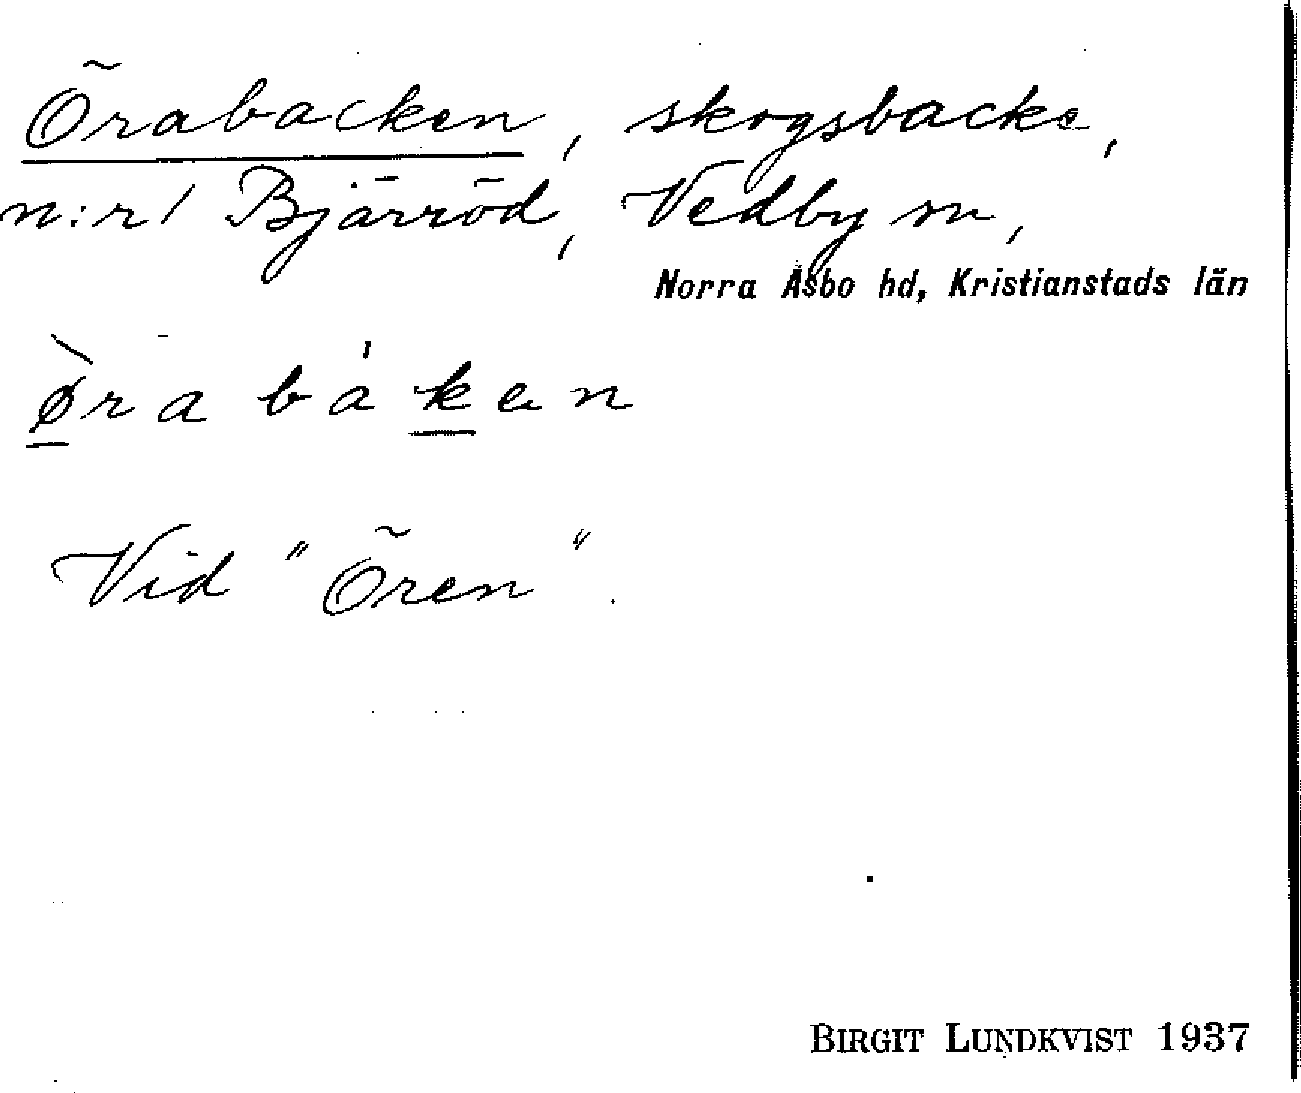 Örabacken, skogsbacke,
n:r 1 Bjärröd, Vedby sn,
Norra Åsbo hd, Kristianstads län
ø̀rabákan
Vid "Ören".
BIRGIT LUNDKVIST 1937